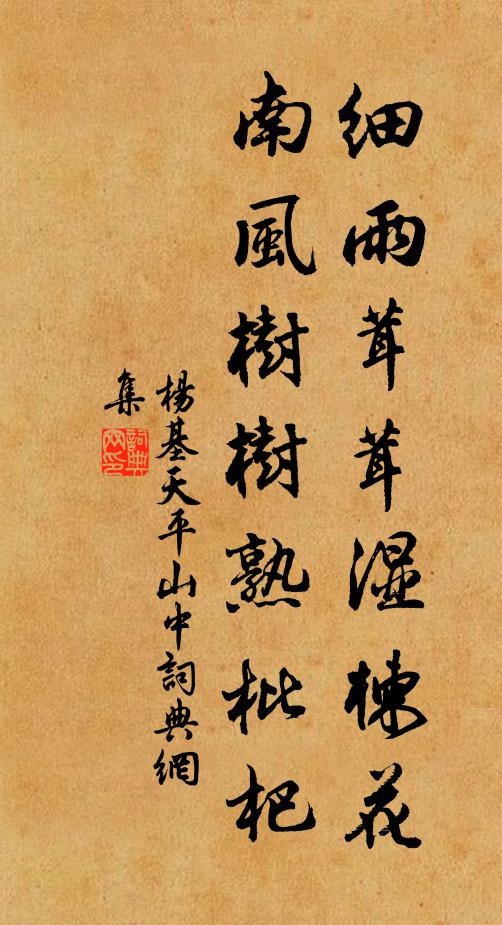 細雨茸茸濕楝花
南風樹樹熟枇杷
楊基天平山中詞典網
集
詞典
网印